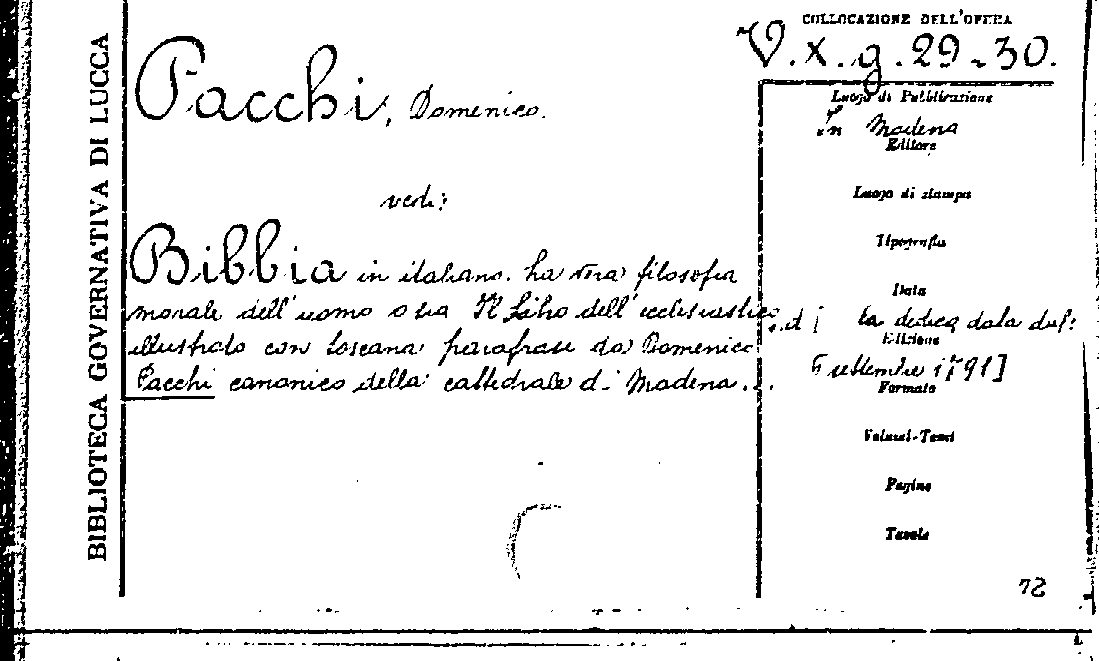 BIBLIOTECA GOVERNATIVA DI LUCCA
COLLOCAZIONE DELL'OPERA
V. x. g. 29-30.
Pacchi, Domenico.
Luogo di Pubblicazione
In Modena
Editore
vedi:
Luogo di stampa
Tipografia
Bibbia in italiano. La vera filosofia
Data
morale dell'uomo o sia Il Libro dell'ecclesiastico
la dedica
Edizione
illustrato con toscana parafrasi da Domenico
Pacchi canonico della cattedrale di Modena...
settembre 1791]
Formato
Volumi-Tomi
Pagine
Tavole
72